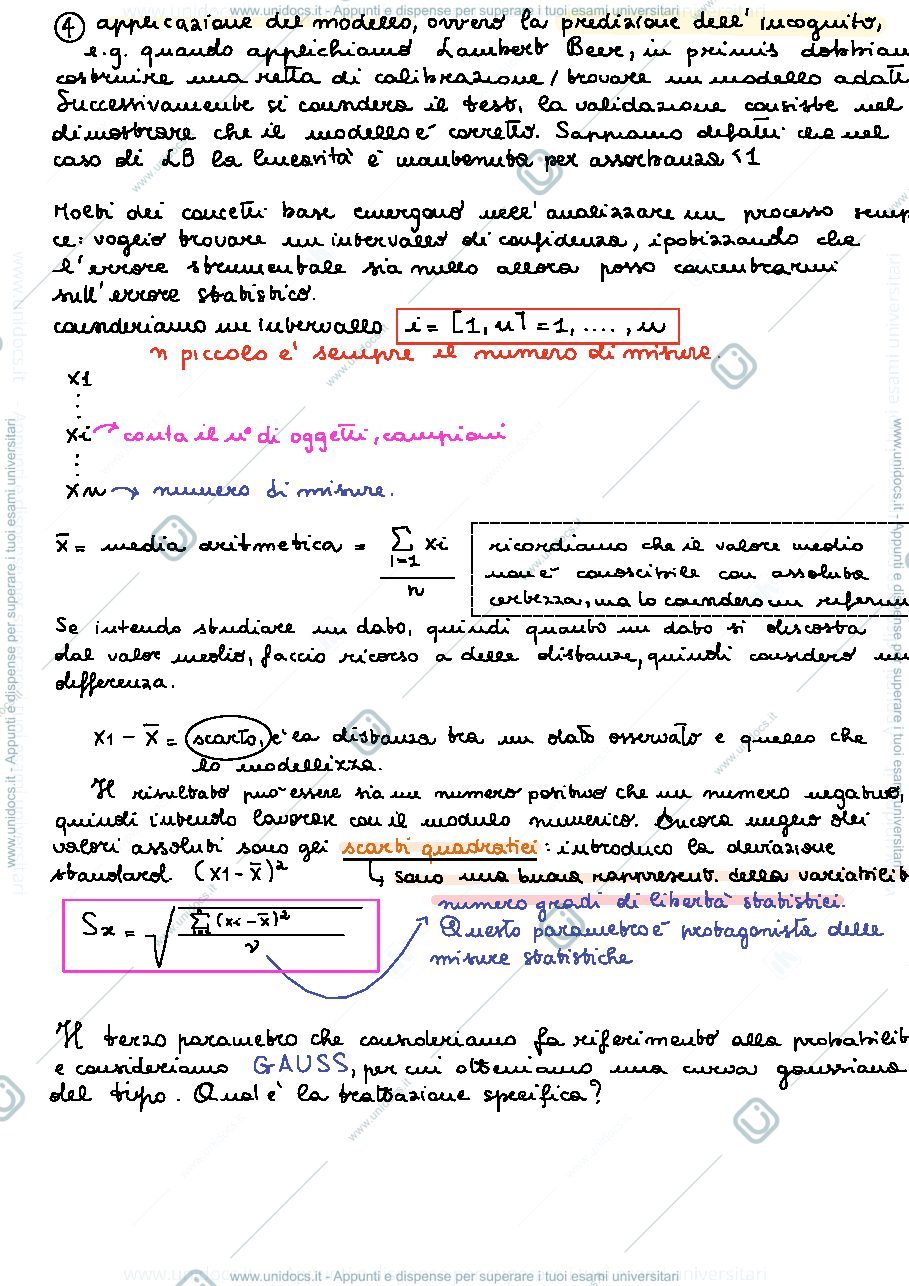 www.unidocs.it - Appunti e dispense per superare i tuoi esami universitari
④ applicazione del modello, ovvero la predizione dell'incognito,
e.g. quando applichiamo Lambert Beer, in primis dobbiam
costruire una retta di calibrazione / trovare un modello adat
Successivamente si considera il test, la validazione consiste nel
dimostrare che il modello è corretto. Sappiamo difatti che nel
caso di LB la linearità è mantenuta per assorbanza <1
Molti dei concetti base emergono nell'analizzare un processo semp
ce: voglio trovare un intervallo di confidenza, ipotizzando che
l'errore strumentale sia nullo allora posso concentrarmi
sull'errore statistico.
consideriamo un intervallo i = [1, n] = 1, ...., n
n piccolo è sempre il numero di misure.
x1
xi → conta il n° di oggetti, campioni
xn → numero di misure.
x̄ = media aritmetica = Σ i=1 xi / n
ricordiamo che il valore medio
non è conoscibile con assoluta
certezza, ma lo considero un riferim
Se intendo studiare un dato, quindi quanto un dato si discosta
dal valor medio, faccio ricorso a delle distanze, quindi considero un
differenza.
x1 - x̄ = scarto, è la distanza tra un dato osservato e quello che
lo modellizza.
Il risultato può essere sia un numero positivo che un numero negativo,
quindi intendo lavorare con il modulo numerico. Ancora meglio dei
valori assoluti sono gli scarti quadratici: introduco la deviazione
standard (x1 - x̄)² ↳ sono una buona rappresent. della variabilit
numero gradi di libertà statistici.
Sx = √ Σ i=1 (xi - x̄)² / ν
Questo parametro è protagonista delle
misure statistiche
Il terzo parametro che consideriamo fa riferimento alla probabilit
e consideriamo GAUSS, per cui otteniamo una curva gaussiana
del tipo. Qual è la trattazione specifica?
www.unidocs.it - Appunti e dispense per superare i tuoi esami universitari